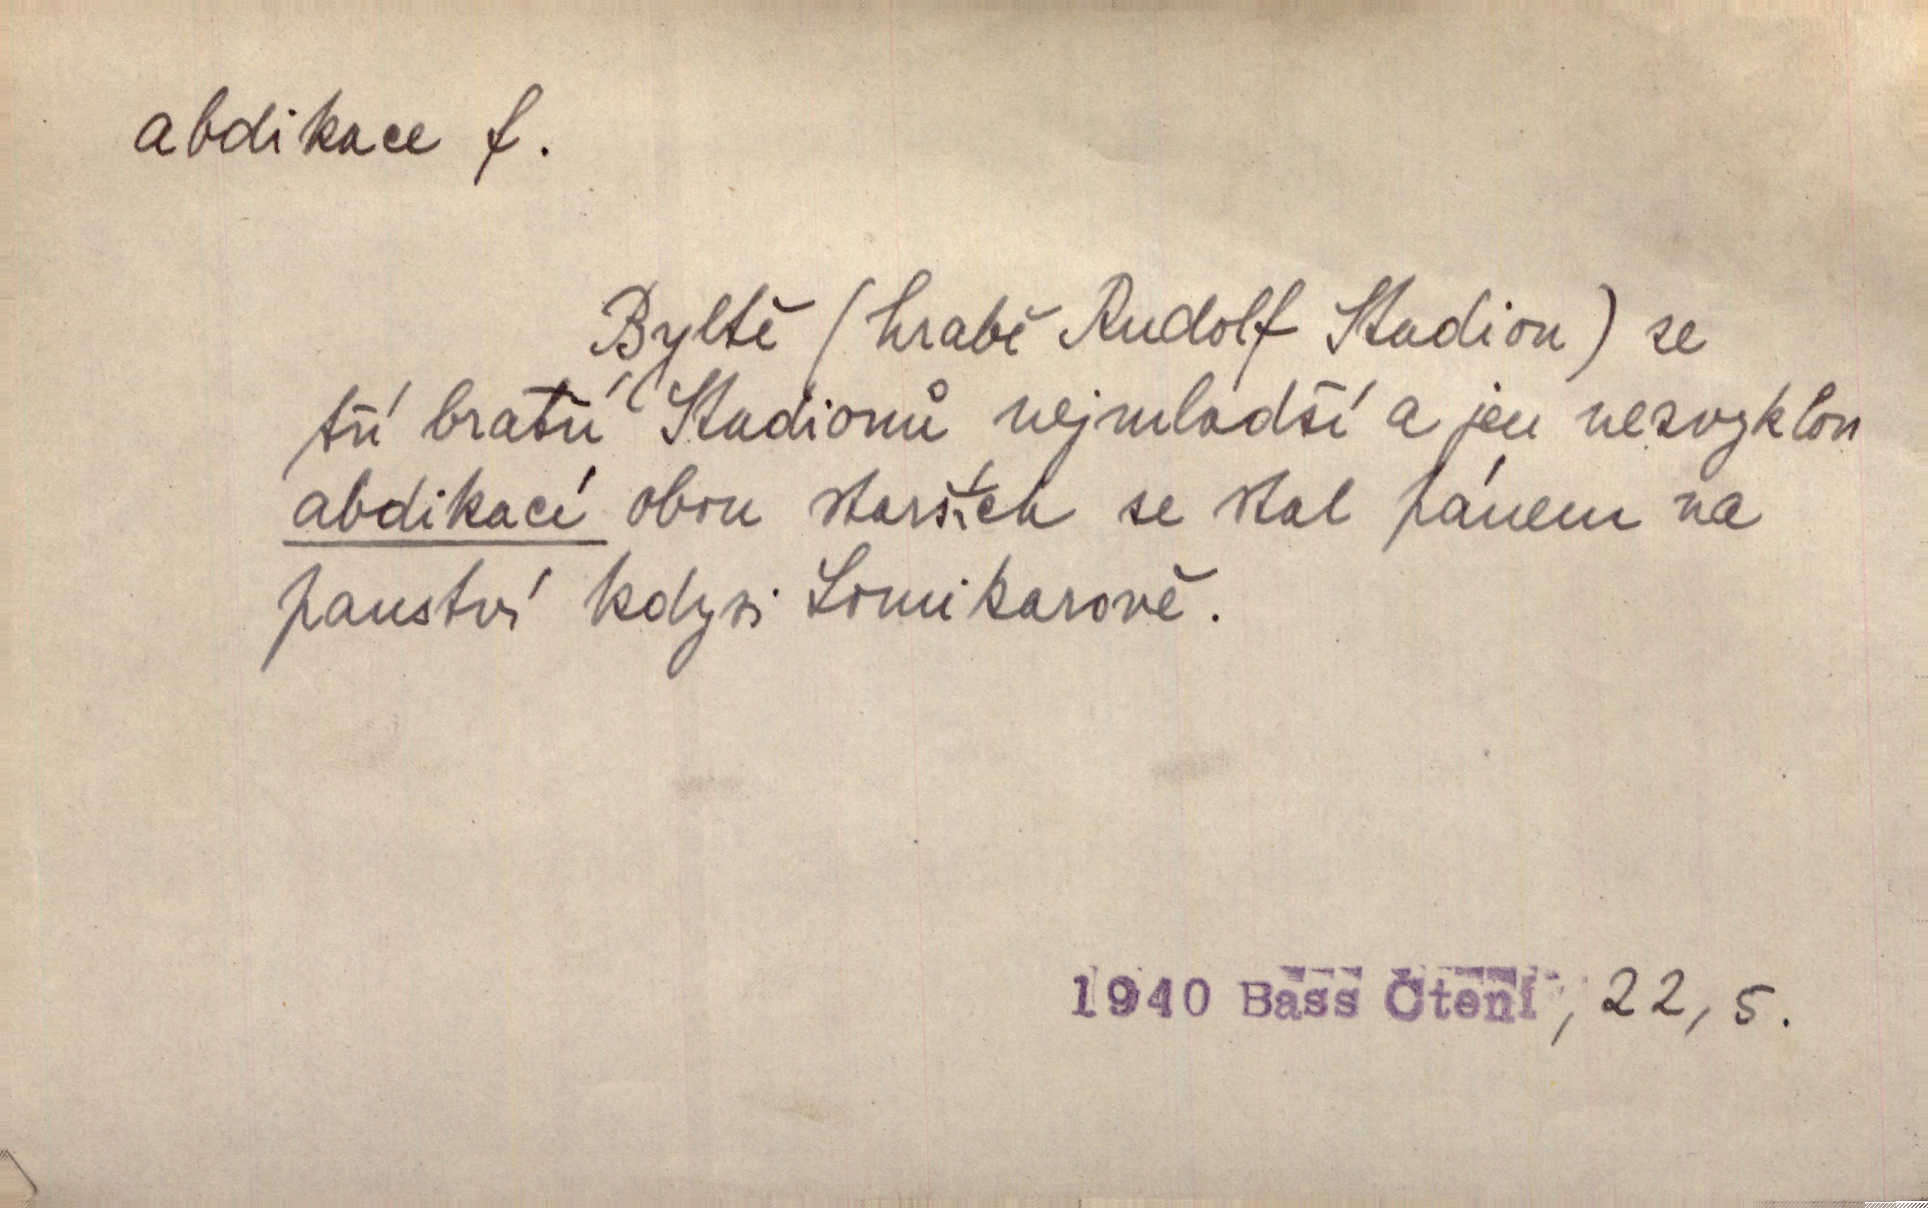 abdikace f.
Byltě (hrabě Rudolf Stadion) se
tří bratří Stadionů nejmladší a jen nezvyklou
abdikací obou starších se stal pánem na
panství kdysi Lomikarově.
1940 Bass Čtení, 22, 5.